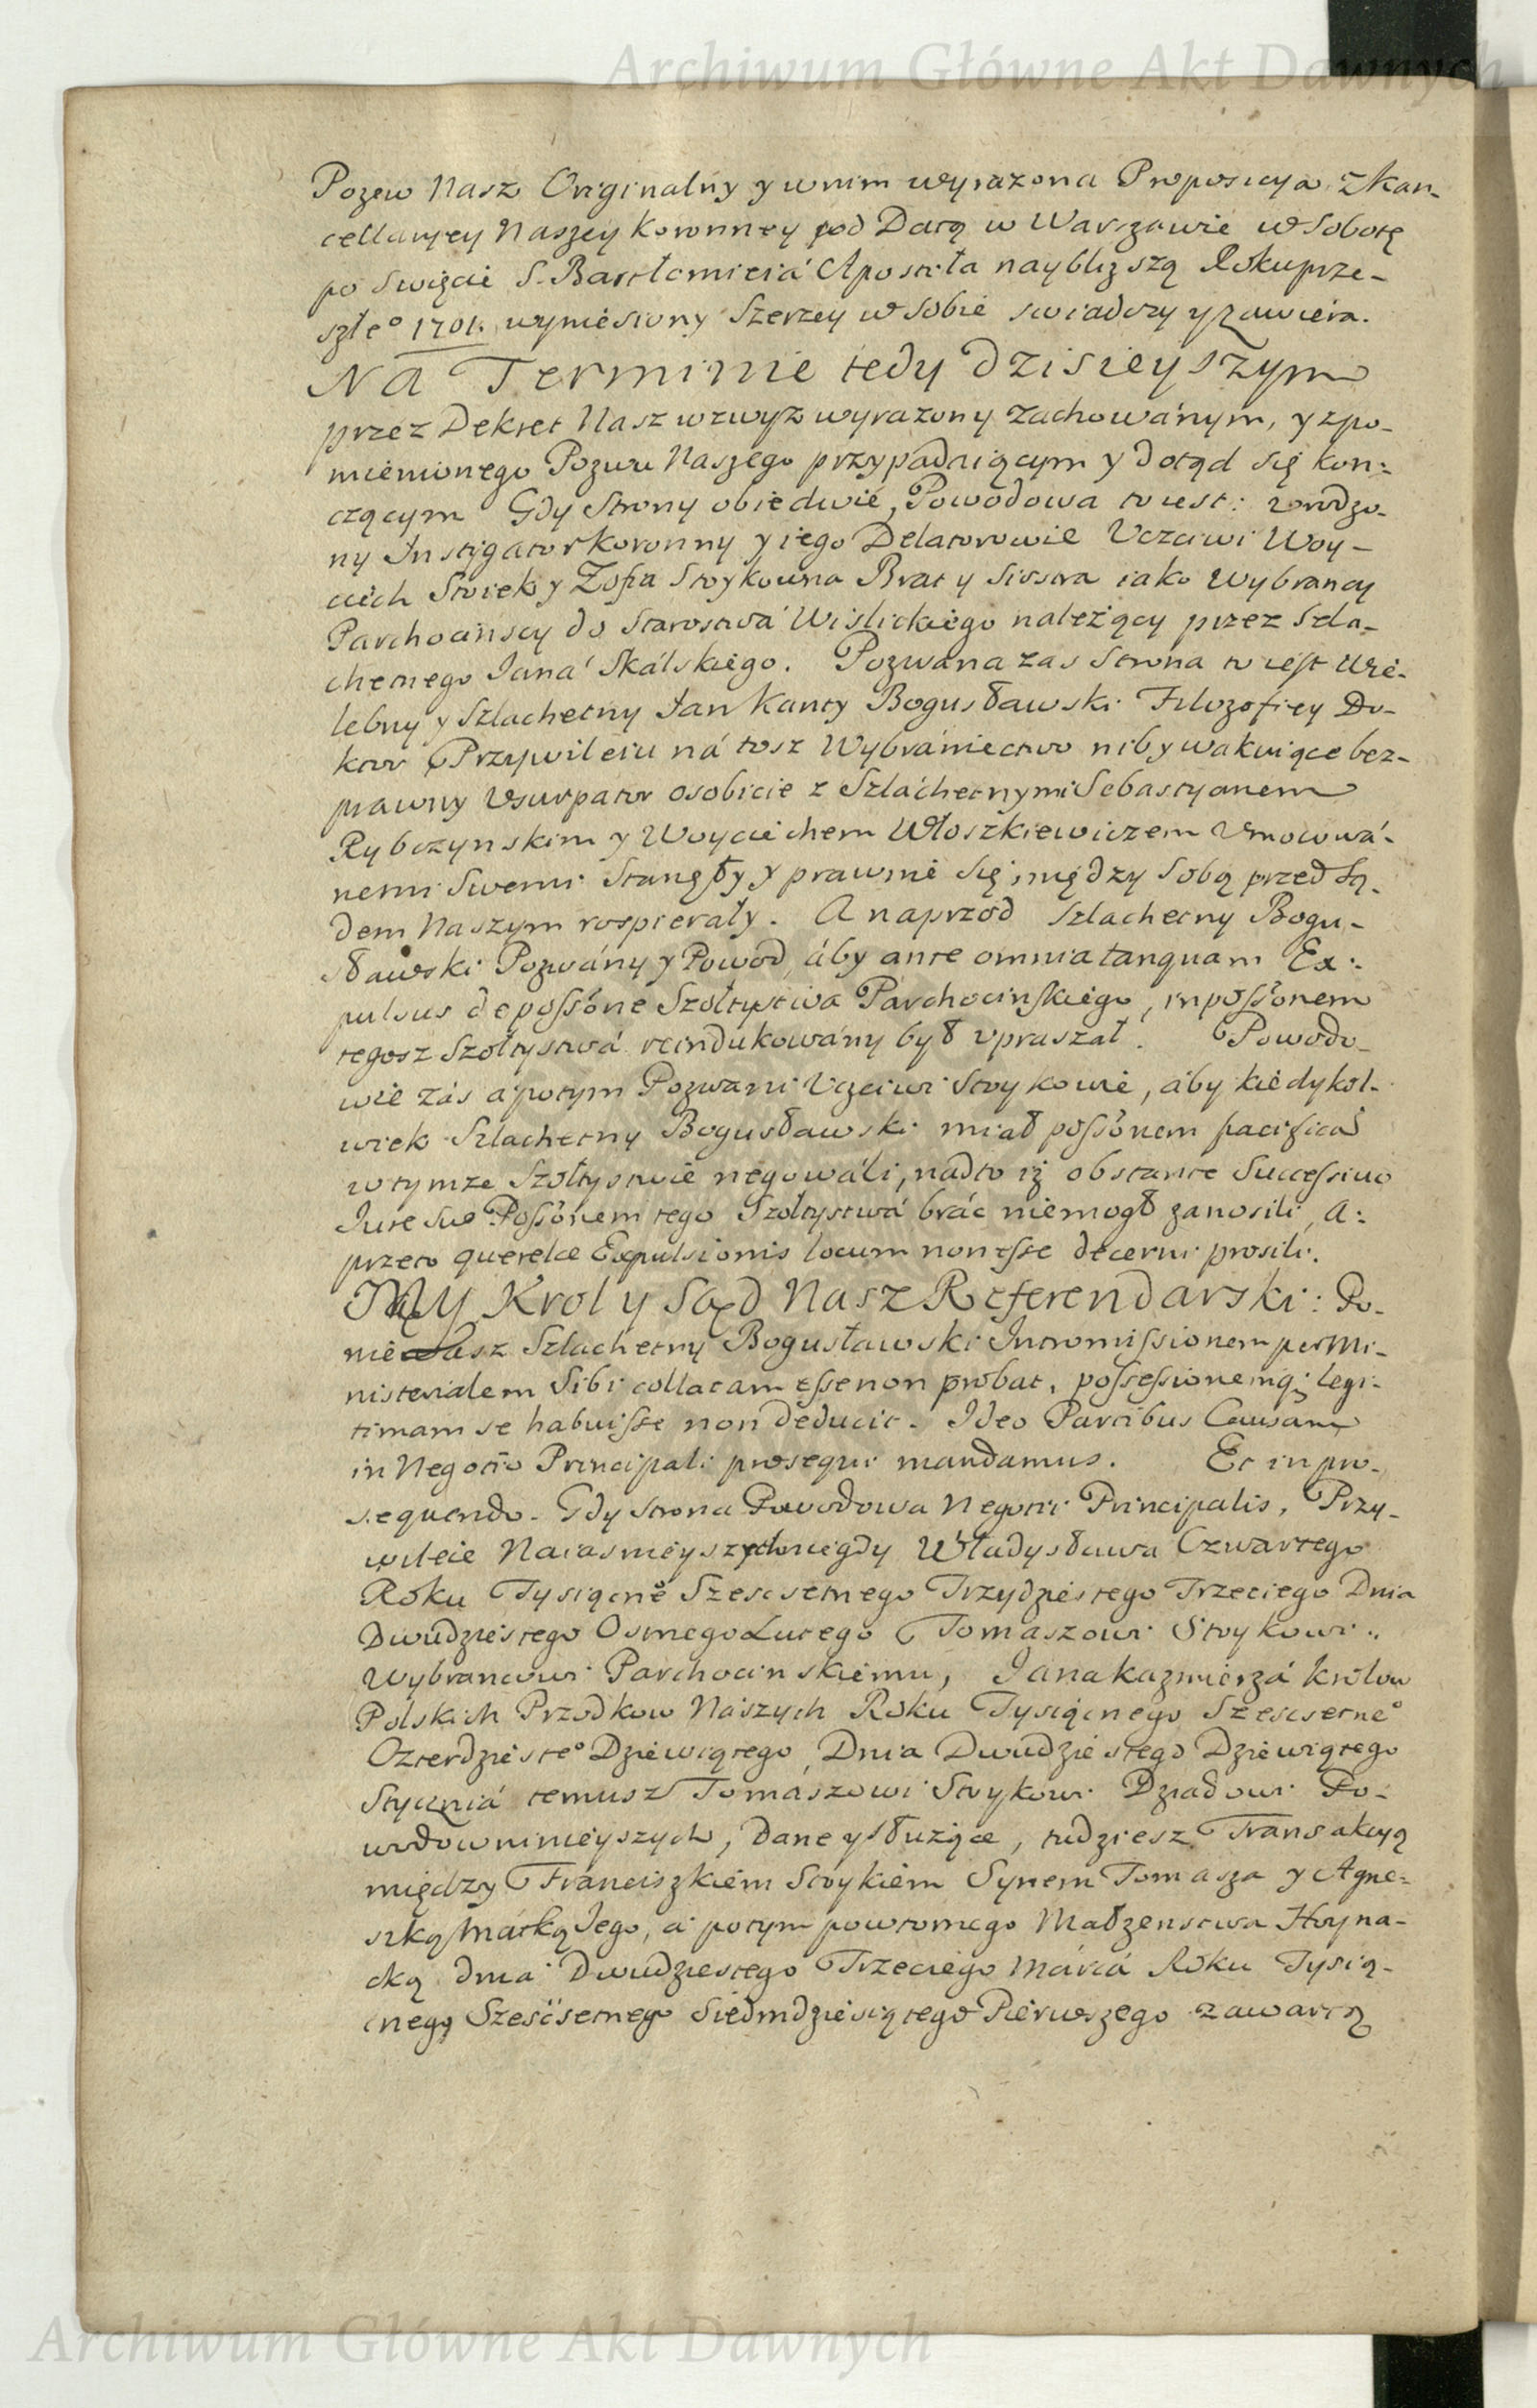 Archiwum Główne Akt Dawnych
Pozew Nasz Originalny y w nim wyrazona Propozycya z Kan-
cellaryey Naszey Koronney pod Datą w Warszawie w Sobotę
po Swięcie S. Bartłomieiá Apostoła naybliszą Roku prze-
szłeº 1701. wyniesiony szerzey w sobie swiadczy y zawiera.
Na Terminie tedy dzisieyszym
przez Dekret Nasz wzwyz wyrazony zachowánym, y zpo-
mienionego Pozwu Naszego przypadaiącym y dotąd się kon:
czącym Gdy Strony obiedwie, Powodowa to iest: vrodzo-
ny Instygator Koronny y iego Delatorowie Vczciwi Woy-
ciech Stoiek y Zofia Stoykowna Brat y Siostra iako Wybrancy
Parchocinscy do Starostwá Wislickiego należący przez Szla-
chetnego Ianá Skálskiego. Pozwana zas Strona to iest Wie-
lebny y Szlachetny Ian Kanty Bogusławski Filozofiey Do-
ktor Przywileiu ná tosz Wybrániectwo niby wakuiące bez-
prawny Vsurpator osobicie z Szláchetnymi Sebastyanem
Rybczynskim y Woyciechem Włoszkiewiczem Vmocowá-
nemi Swemi Stanęły y prawnie się między sobą przed Są-
dem Naszym rospierały. A naprzod Szlachetny Bogu-
sławski Pozwány y Powod, áby ante omnia tanquam Ex:
pulsus de possône Szołtystwa Parchocinskiego, in possônem
tegosz Szołtystwá reindukowány był vpraszał. Powodo-
wie zás a potym Pozwani Vczciwi Stoykowie, aby kiedykol-
wiek Szlachetny Bogusławski miał possônem pacificâ
w tymze Szołtystwie negowáli, nadto iż obstante Successivo
Iure Suo Possônem tego Szołtystwá bráć niemogł zanosili, A:
przeto querelæ Expulsionis locum non esse decerni prosili.
My Krol y Sąd Nasz Referendarski: Po-
niewasz Szlachetny Bogusławski Intromissionem per Mi-
nisterialem Sibi collatam esse non probat, possessionemq; legi-
timam se habuisse non deducit. Ideo Partibus Causam
in Negotio Principali prosequi mandamus. Et in pro-
sequendo. Gdy strona Powodowa Negotii Principalis, Przy-
wileie Naiasnieyszych niegdy Władysława Czwartego
Roku Tysiącneº Szescsetnego Trzydziestego Trzeciego Dnia
Dwudziestego Osmego Lutego Tomaszowi Stoykowi
Wybrancowi Parchocinskiemu, Iana Kazmierzá Krolow
Polskich Przodkow Naszych Roku Tysiącnego Szescsetneº
Czterdziesteº Dziewiątego, Dnia Dwudziestego Dziewiątego
Styczniá temusz Tomaszowi Stoykowi Dziadowi Po-
wodow ninieyszych, dane y służące, tudziesz Transakcyą
między Fránciszkiem Stoykiem Synem Tomasza y Agne-
szką Matką Iego, a potym powtornego Małzenstwa Hoyna-
cką dnia Dwudziestego Trzeciego Márcá Roku Tysią-
cnego Szescsetnego Siedmdziesiątego Pierwszego zawartą
Archiwum Główne Akt Dawnych